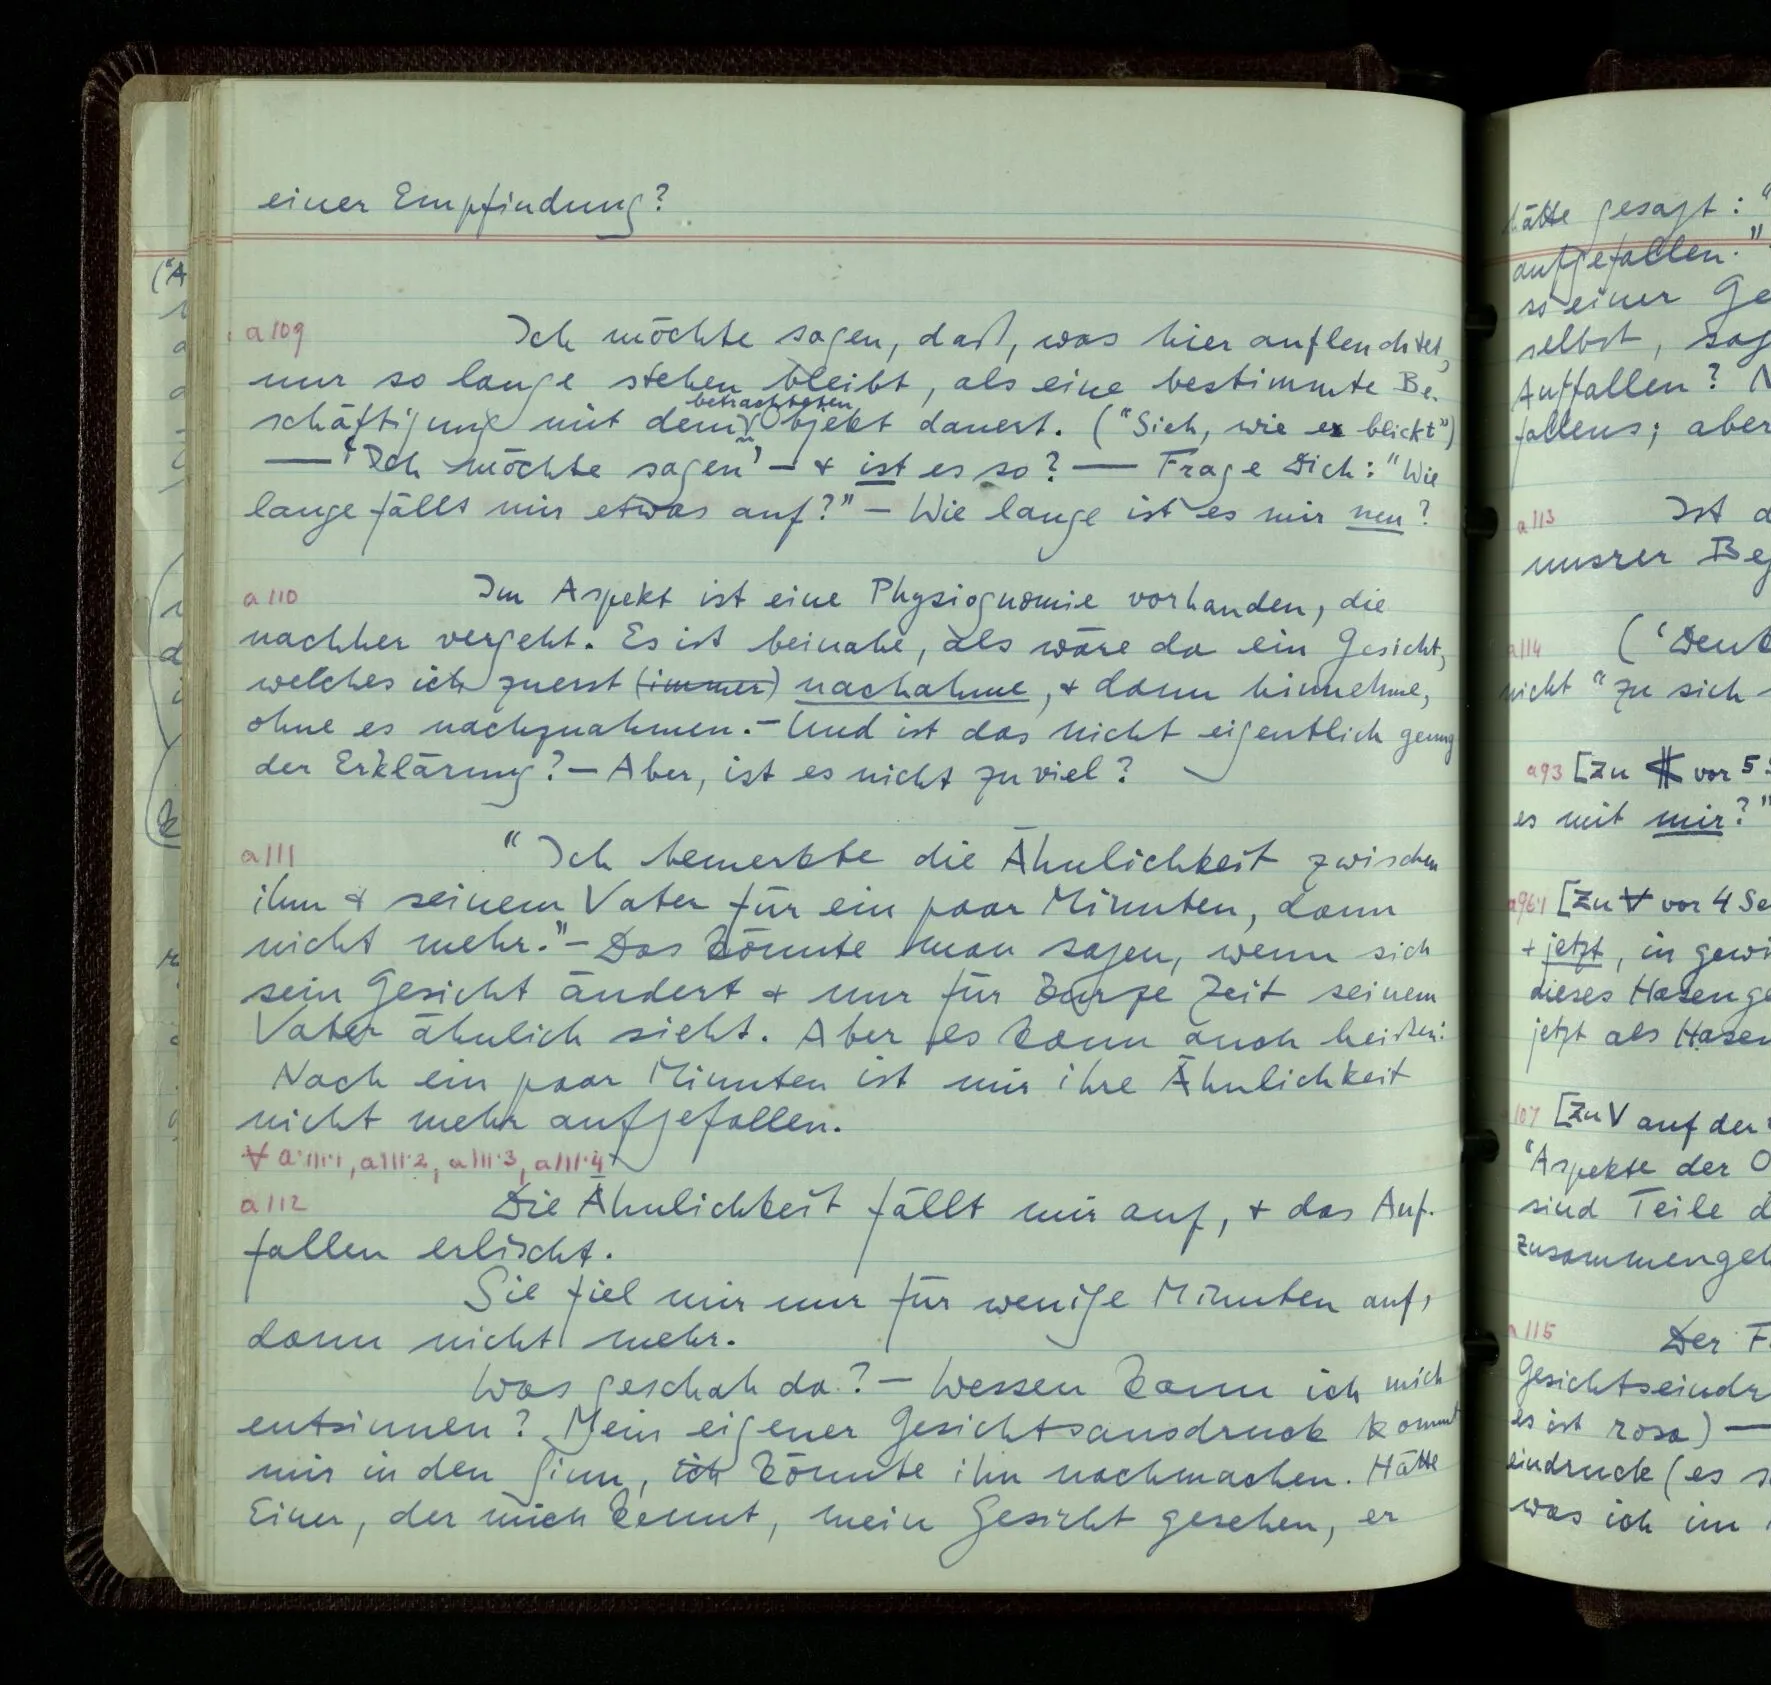 einer Empfindung?
a109 Ich möchte sagen, daß, was hier aufleuchtet,
nur so lange stehen bleibt, als eine bestimmte Be-
betrachteten
schäftigung mit dem Objekt dauert. ("Sieh, wie er blickt")
— 'Ich möchte sagen' – & ist es so? — Frage Dich: "Wie
lange fällt mir etwas auf?" – Wie lange ist es mir neu?
a110 Im Aspekt ist eine Physiognomie vorhanden, die
nachher vergeht. Es ist beinahe, als wäre da ein Gesicht,
welches ich zuerst (immer) nachahme, & dann hinnehme,
ohne es nachzuahmen. – Und ist das nicht eigentlich genug
der Erklärung? – Aber, ist es nicht zu viel?
a111 "Ich bemerkte die Ähnlichkeit zwischen
ihm & seinem Vater für ein paar Minuten, dann
nicht mehr." – Das könnte man sagen, wenn sich
sein Gesicht ändert & nur für kurze Zeit seinem
Vater ähnlich sieht. Aber es kann auch heißen:
Nach ein paar Minuten ist mir ihre Ähnlichkeit
nicht mehr aufgefallen.
∀ a111·1, a111·2, a111·3, a111·4
a112 Die Ähnlichkeit fällt mir auf, & das Auf-
fallen erlischt.
Sie fiel mir nur für wenige Minuten auf,
dann nicht mehr.
Was geschah da? – Wessen kann ich mich
entsinnen? Mein eigener Gesichtsausdruck kommt
mir in den Sinn, ich könnte ihn nachmachen. Hätte
Einer, der mich kennt, mein Gesicht gesehen, er
hätte gesagt: "
aufgefallen."
so einer Ge
selbst, sag
Auffallen? N
fallens; aber
a113 Ist d
unsrer Beg
a114 ('Deut
nicht "zu sich
a93 [Zu vor 5 S
es mit mir?"
a96·1 [Zu ∀ vor 4 Se
& jetzt, in gewi
dieses Hasenge
jetzt als Hasen
107 [Zu V auf der
"Aspekte der O
sind Teile d
zusammengeh
a115 Der F
Gesichtseindr
es ist rosa) —
eindruck (es s
was ich im